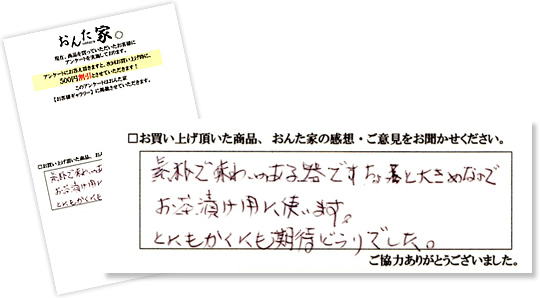 おんた家。
現在、商品を買っていただいたお客様に
アンケートを実施しております。
アンケートにお答え頂きますと、次回お買い上げ時に、
500円割引とさせていただきます!
このアンケートはおんた家
【お客様ギャラリー】に掲載させていただきます。
□お買い上げ頂いた商品、お
素朴で味わいのあ
お茶漬け用に使
とにもかくにも
□お買い上げ頂いた商品、おんた家の感想・ご意見をお聞かせください。
素朴で味わいのある器ですね。大きめなので
お茶漬け用に使います。
とにもかくにも期待どうりでした。
ご協力ありがとうございました。